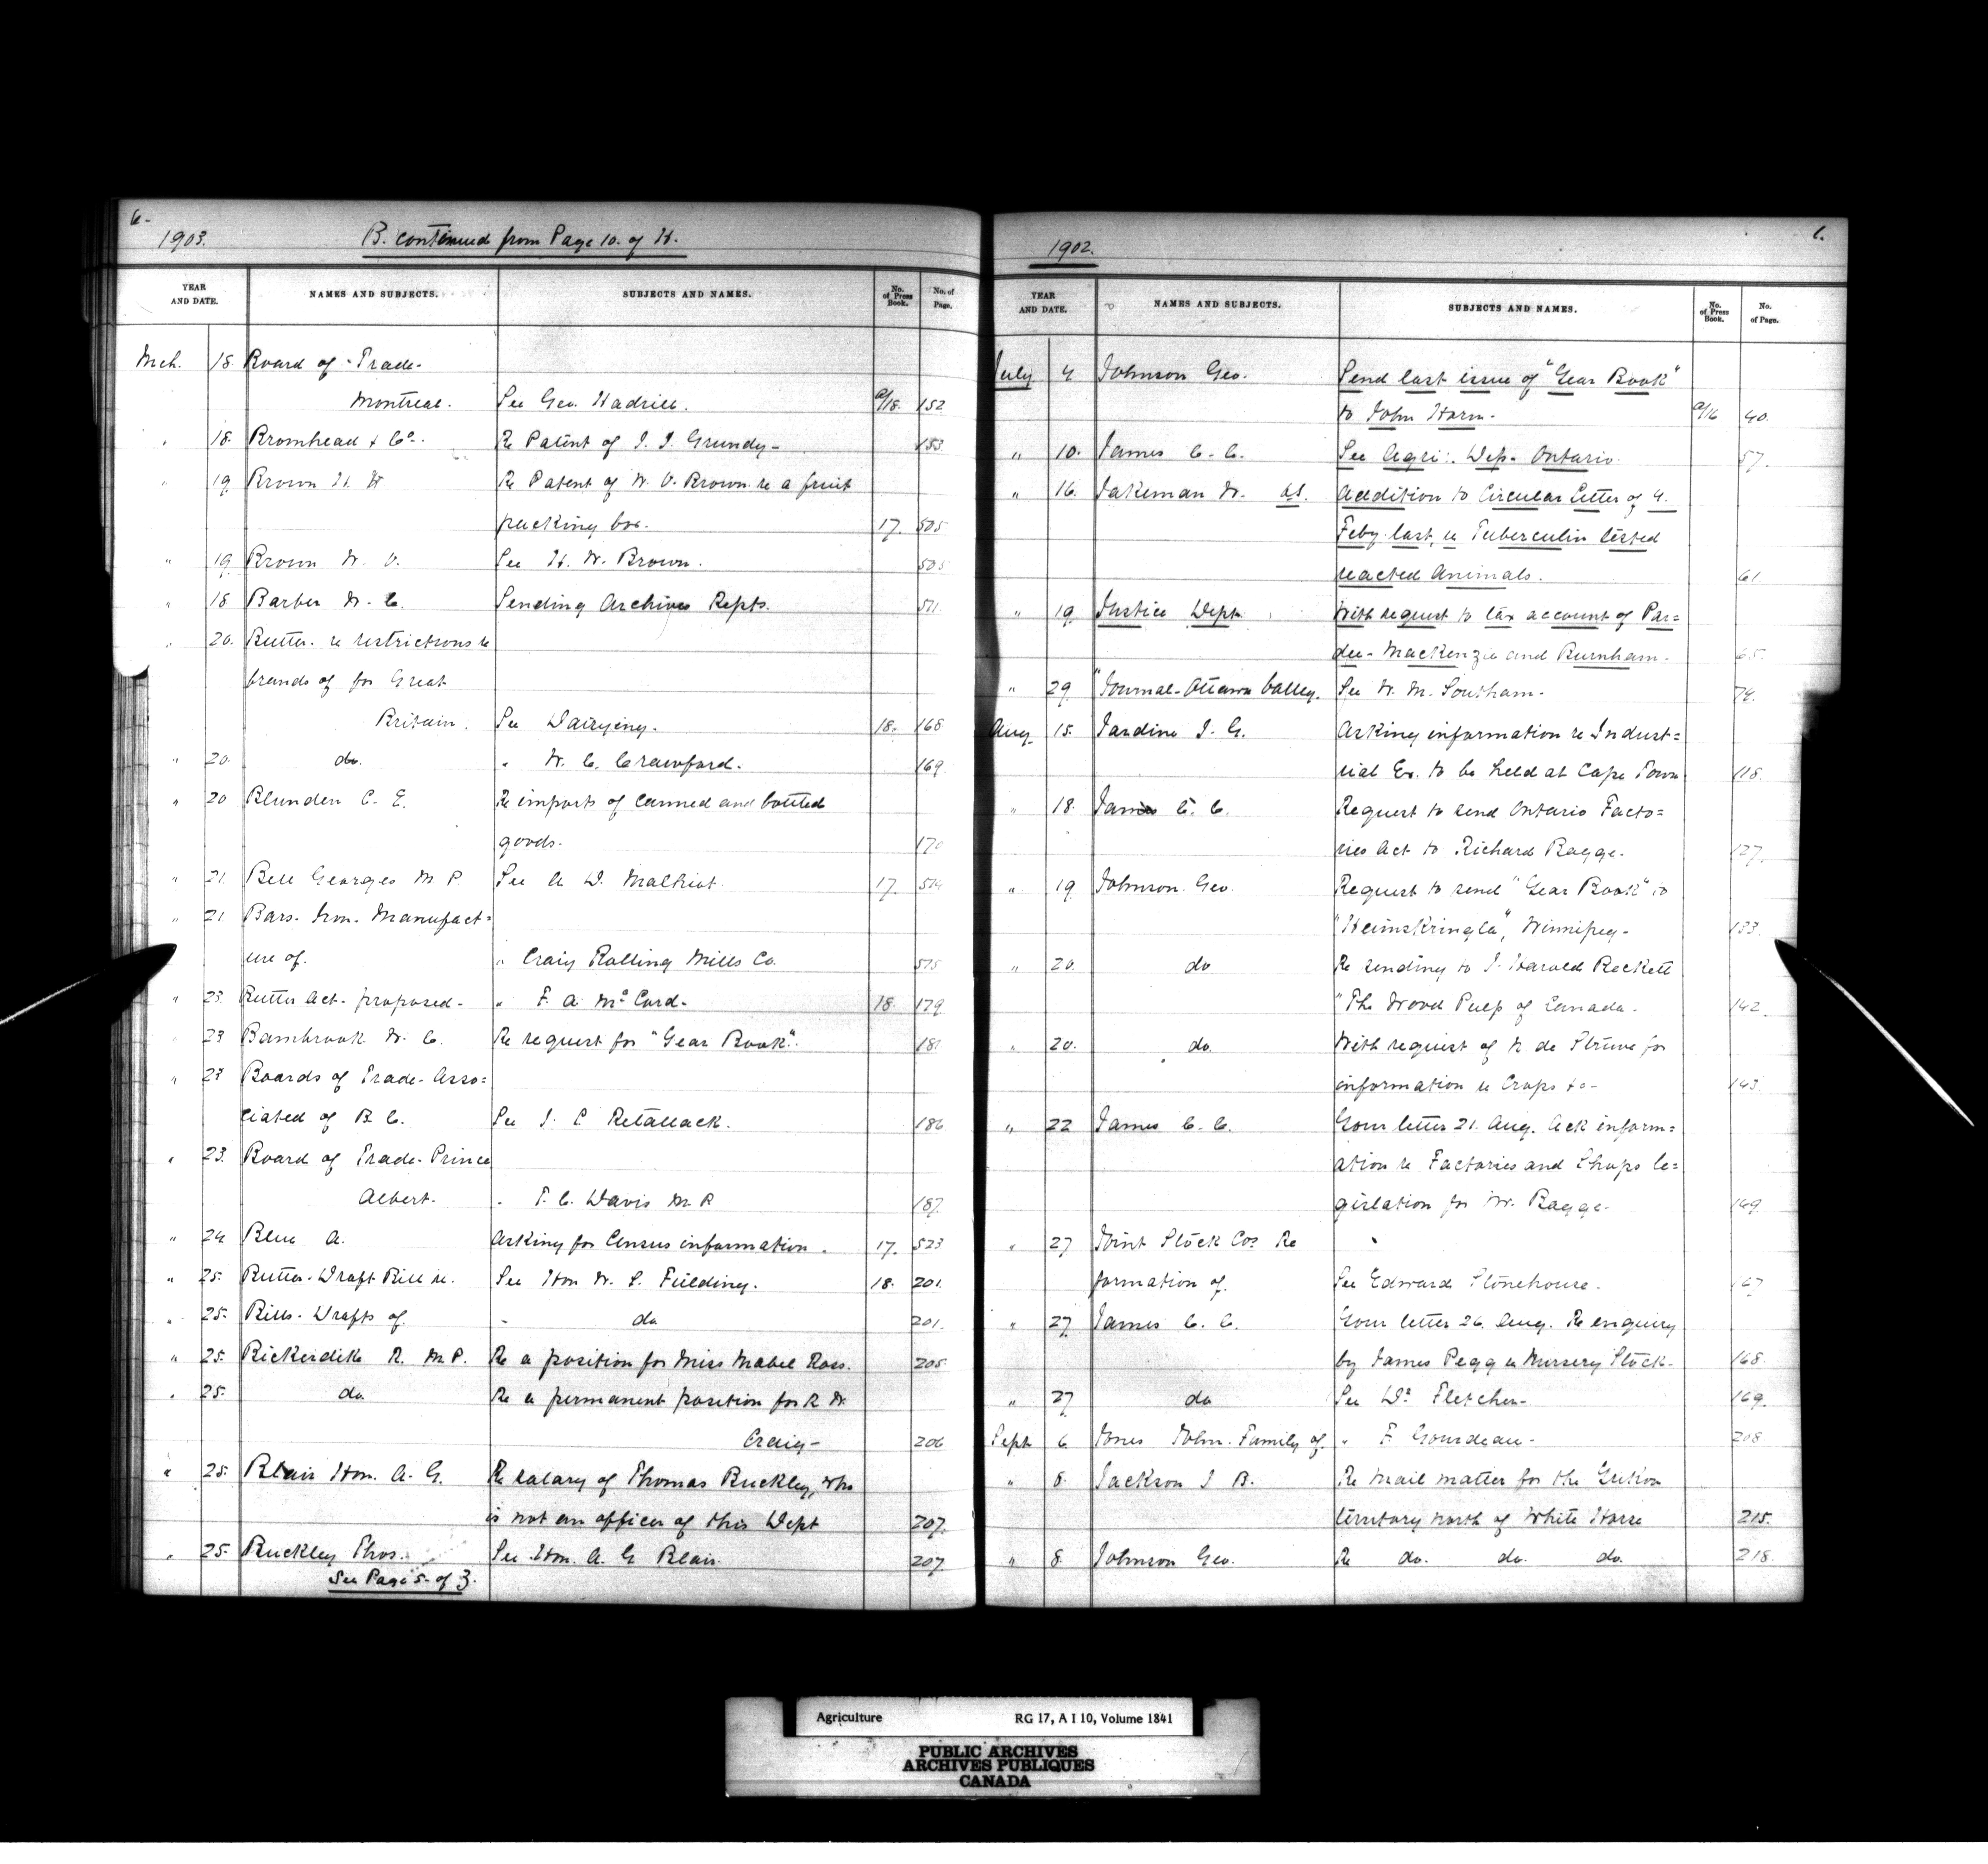 6-
1903.
B. continued from Page 10. of H.
YEAR AND DATE.
NAMES AND SUBJECTS.
SUBJECTS AND NAMES.
No. of Press Book.
No. of Page.
Mch. 18. Board of Trade-
Montreal. See Geo. Hadrill. a/18. 152
" 18. Bromhead & Co. Re Patent of J. J. Grundy- 153.
" 19 Brown H. W Re Patent of W. V. Brown re a fruit
packing box. 17. 505
" 19 Brown W. V. See H. W. Brown. 505
" 18 Barber W. C. Sending Archives Repts. 511
" 20. Butter. re restrictions re
brands of for Great
Britain. See Dairying. 18. 168
" 20. do. " W. C. Crawford. 169.
" 20 Blunden C. E. Re imports of canned and bottled
goods. 170
" 21. Bell Georges M. P. See A. D. Malhiot. 17. 514
" 21. Bars. Iron. Manufact=
ure of. " Craig Rolling Mills Co. 515
" 23. Butter Act. proposed- " F. A. McCord- 18. 179
" 23 Bambrook W. C. Re request for "Year Book". 181
" 23 Boards of Trade- Asso=
ciated of B C. See J. L. Retallack. 186
" 23. Board of Trade- Prince
Albert. " T. C. Davis M. P. 187.
" 24 Blue A. Asking for Census information. 17. 523
" 25. Butter. Draft Bill re. See Hon W. S. Fielding. 18. 201.
" 25. Bills- Drafts of. " do 201.
" 25. Bickerdike R. M.P. Re a position for Miss Mabel Ross. 205.
" 25. do. Re a permanent position for R W.
Craig- 206
" 25. Blair Hon. A. G. Re salary of Thomas Buckley, who
is not an officer of this Dept 207.
" 25. Buckley Thos. See Hon. A. G Blair. 207.
See Page 5- of Z.
1.
1902.
YEAR AND DATE.
NAMES AND SUBJECTS.
SUBJECTS AND NAMES.
No. of Press Book.
No. of Page.
July 4 Johnson Geo. Send last issue of "Year Book"
to John Horn- a/16 40.
" 10. James C. C. See Agri: Dep. Ontario. 57.
" 16. Jakeman W. Addition to Circular Letter of 4.
Feby last, re Tuberculin tested
reacted Animals. 61
" 19. Justice Dept. With request to tax account of Par=
dee- Mackenzie and Burnham- 65.
" 29. "Journal- Ottawa Valley. See W. M. Southam- 74.
Aug. 15. Jardine J. G. Asking information re Indust=
rial Ex. to be held at Cape Town 118.
" 18. James C. C. Request to send Ontario Facto=
ries Act to Richard Bagge. 127.
" 19. Johnson Geo. Request to send "Year Book" to
"Heimskringla", Winnipeg- 133.
" 20. do Re sending to J. Harold Beckett
"The Wood Pulp of Canada. 142.
" 20. do. With request of N de Struve for
information re Crops &c- 143.
" 22 James C. C. Your letter 21. Aug. Ack inform=
ation re Factories and Shops le=
gislation for Mr. Bagge. 149.
" 27 Joint Stock Cos. Re
formation of. See Edward Stonehouse. 167
" 27 James C. C. Your letter 26. Aug. Re enquiry
by James Pegg re Nursery Stock- 168.
" 27. do See Dr. Fletcher- 169.
Sept 6 Jones John. Family of. " F. Gourdeau- 208.
" 8. Jackson J B. Re Mail matter for the Yukon
territory north of White Horse 215.
" 8. Johnson Geo. Re do. do. do. 218.
Agriculture RG 17, A I 10, Volume 1841
PUBLIC ARCHIVES
ARCHIVES PUBLIQUES
CANADA